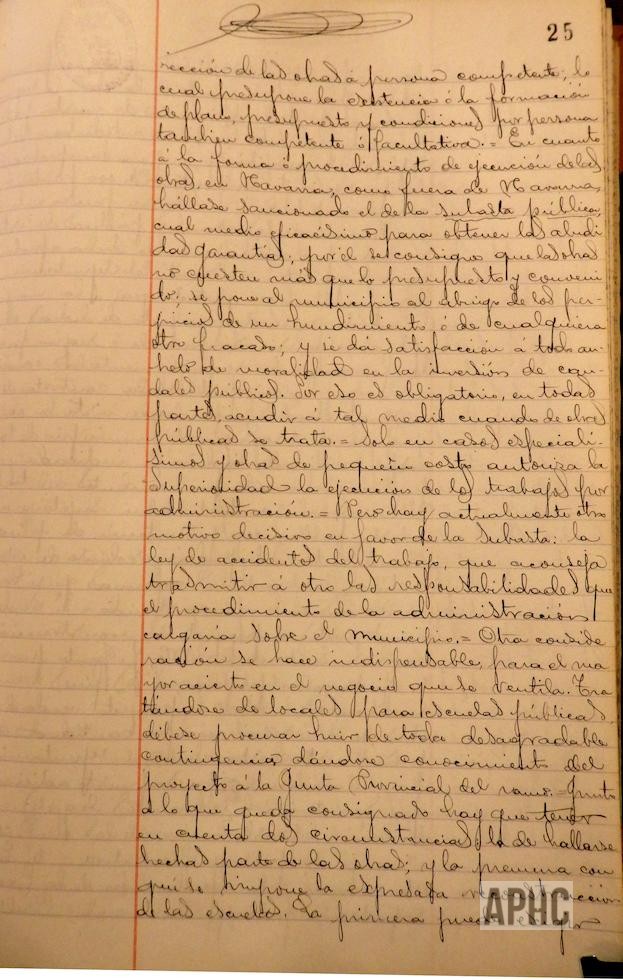 25
rección de las obras á persona competente; lo
cual presupone la existencia ó la formación
de plano, presupuesto y condiciones por persona
tambien competente ó facultativa. = En cuanto
á la forma ó procedimiento de ejecución de las
obras, en Navarra, como fuera de Navarra,
hállase sancionado el de la subasta pública,
cual medio eficacísimo para obtener las aludi
das garantías; por él se consigue que las obras
no cuesten más que lo presupuesto y conveni
do; se pone al municipio al abrigo de los per-
juicios de un hundimiento ó de cualquiera
otro fracaso; y se dá satisfacción á todo an-
helo de moralidad en la inversión de cau-
dales públicos. Por eso es obligatorio, en todas
partes, acudir á tal medio cuando de obras
públicas se trata. = Solo en casos especiali-
simos y obras de pequeño costo autoriza la
Superioridad la ejecución de los trabajos por
administración. = Pero hay actualmente otro
motivo decisivo en favor de la subasta: la
ley de accidentes del trabajo, que aconseja
trasmitir á otro las responsabilidades que
el procedimiento de la administración
cargaría sobre el Municipio. = Otra conside
ración se hace indispensable, para el ma
yor acierto en el negocio que se ventila. Tra
tándose de locales para escuelas públicas,
débese procurar huir de toda desagradable
contingencia dándose conocimiento del
proyecto á la Junta Provincial del ramo. = Junto
a lo que queda consignado hay que tener
en cuenta dos circunstancias; la de hallarse
hechas parte de las obras; y la premura con
que se impone la expresada reconstrucción
de las escuelas. La primera puede
APHC